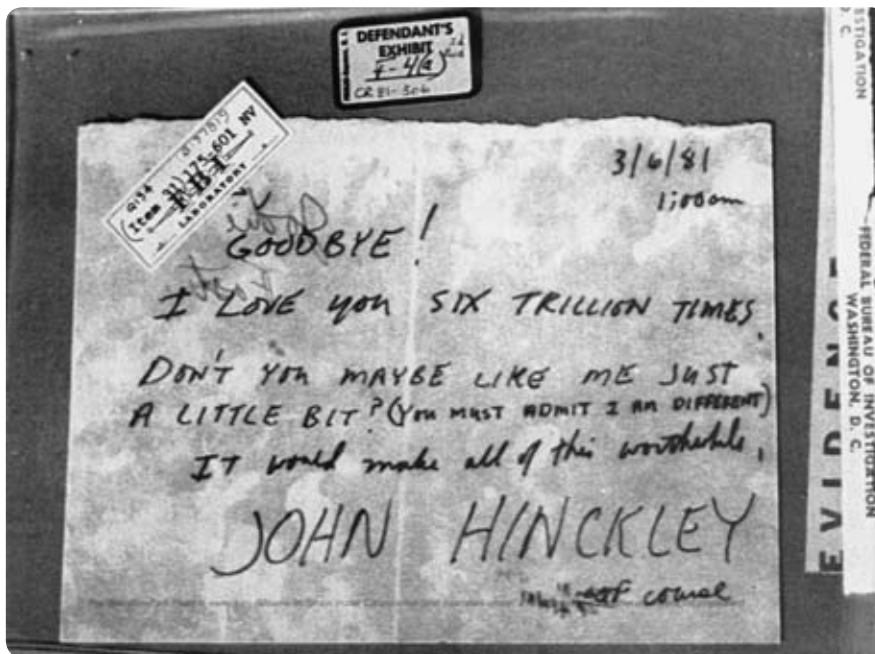 DEFENDANT'S
EXHIBIT
CR 81-306
Q134
FBI
LABORATORY
3/6/81
1:00am
GOODBYE!
I LOVE you SIX TRILLION TIMES.
DON'T YOU MAYBE LIKE ME JUST
A LITTLE BIT? (YOU MUST ADMIT I AM DIFFERENT)
IT would make all of this worthwhile.
JOHN HINCKLEY
of course
EVIDENCE
FEDERAL BUREAU OF INVESTIGATION
WASHINGTON, D. C.